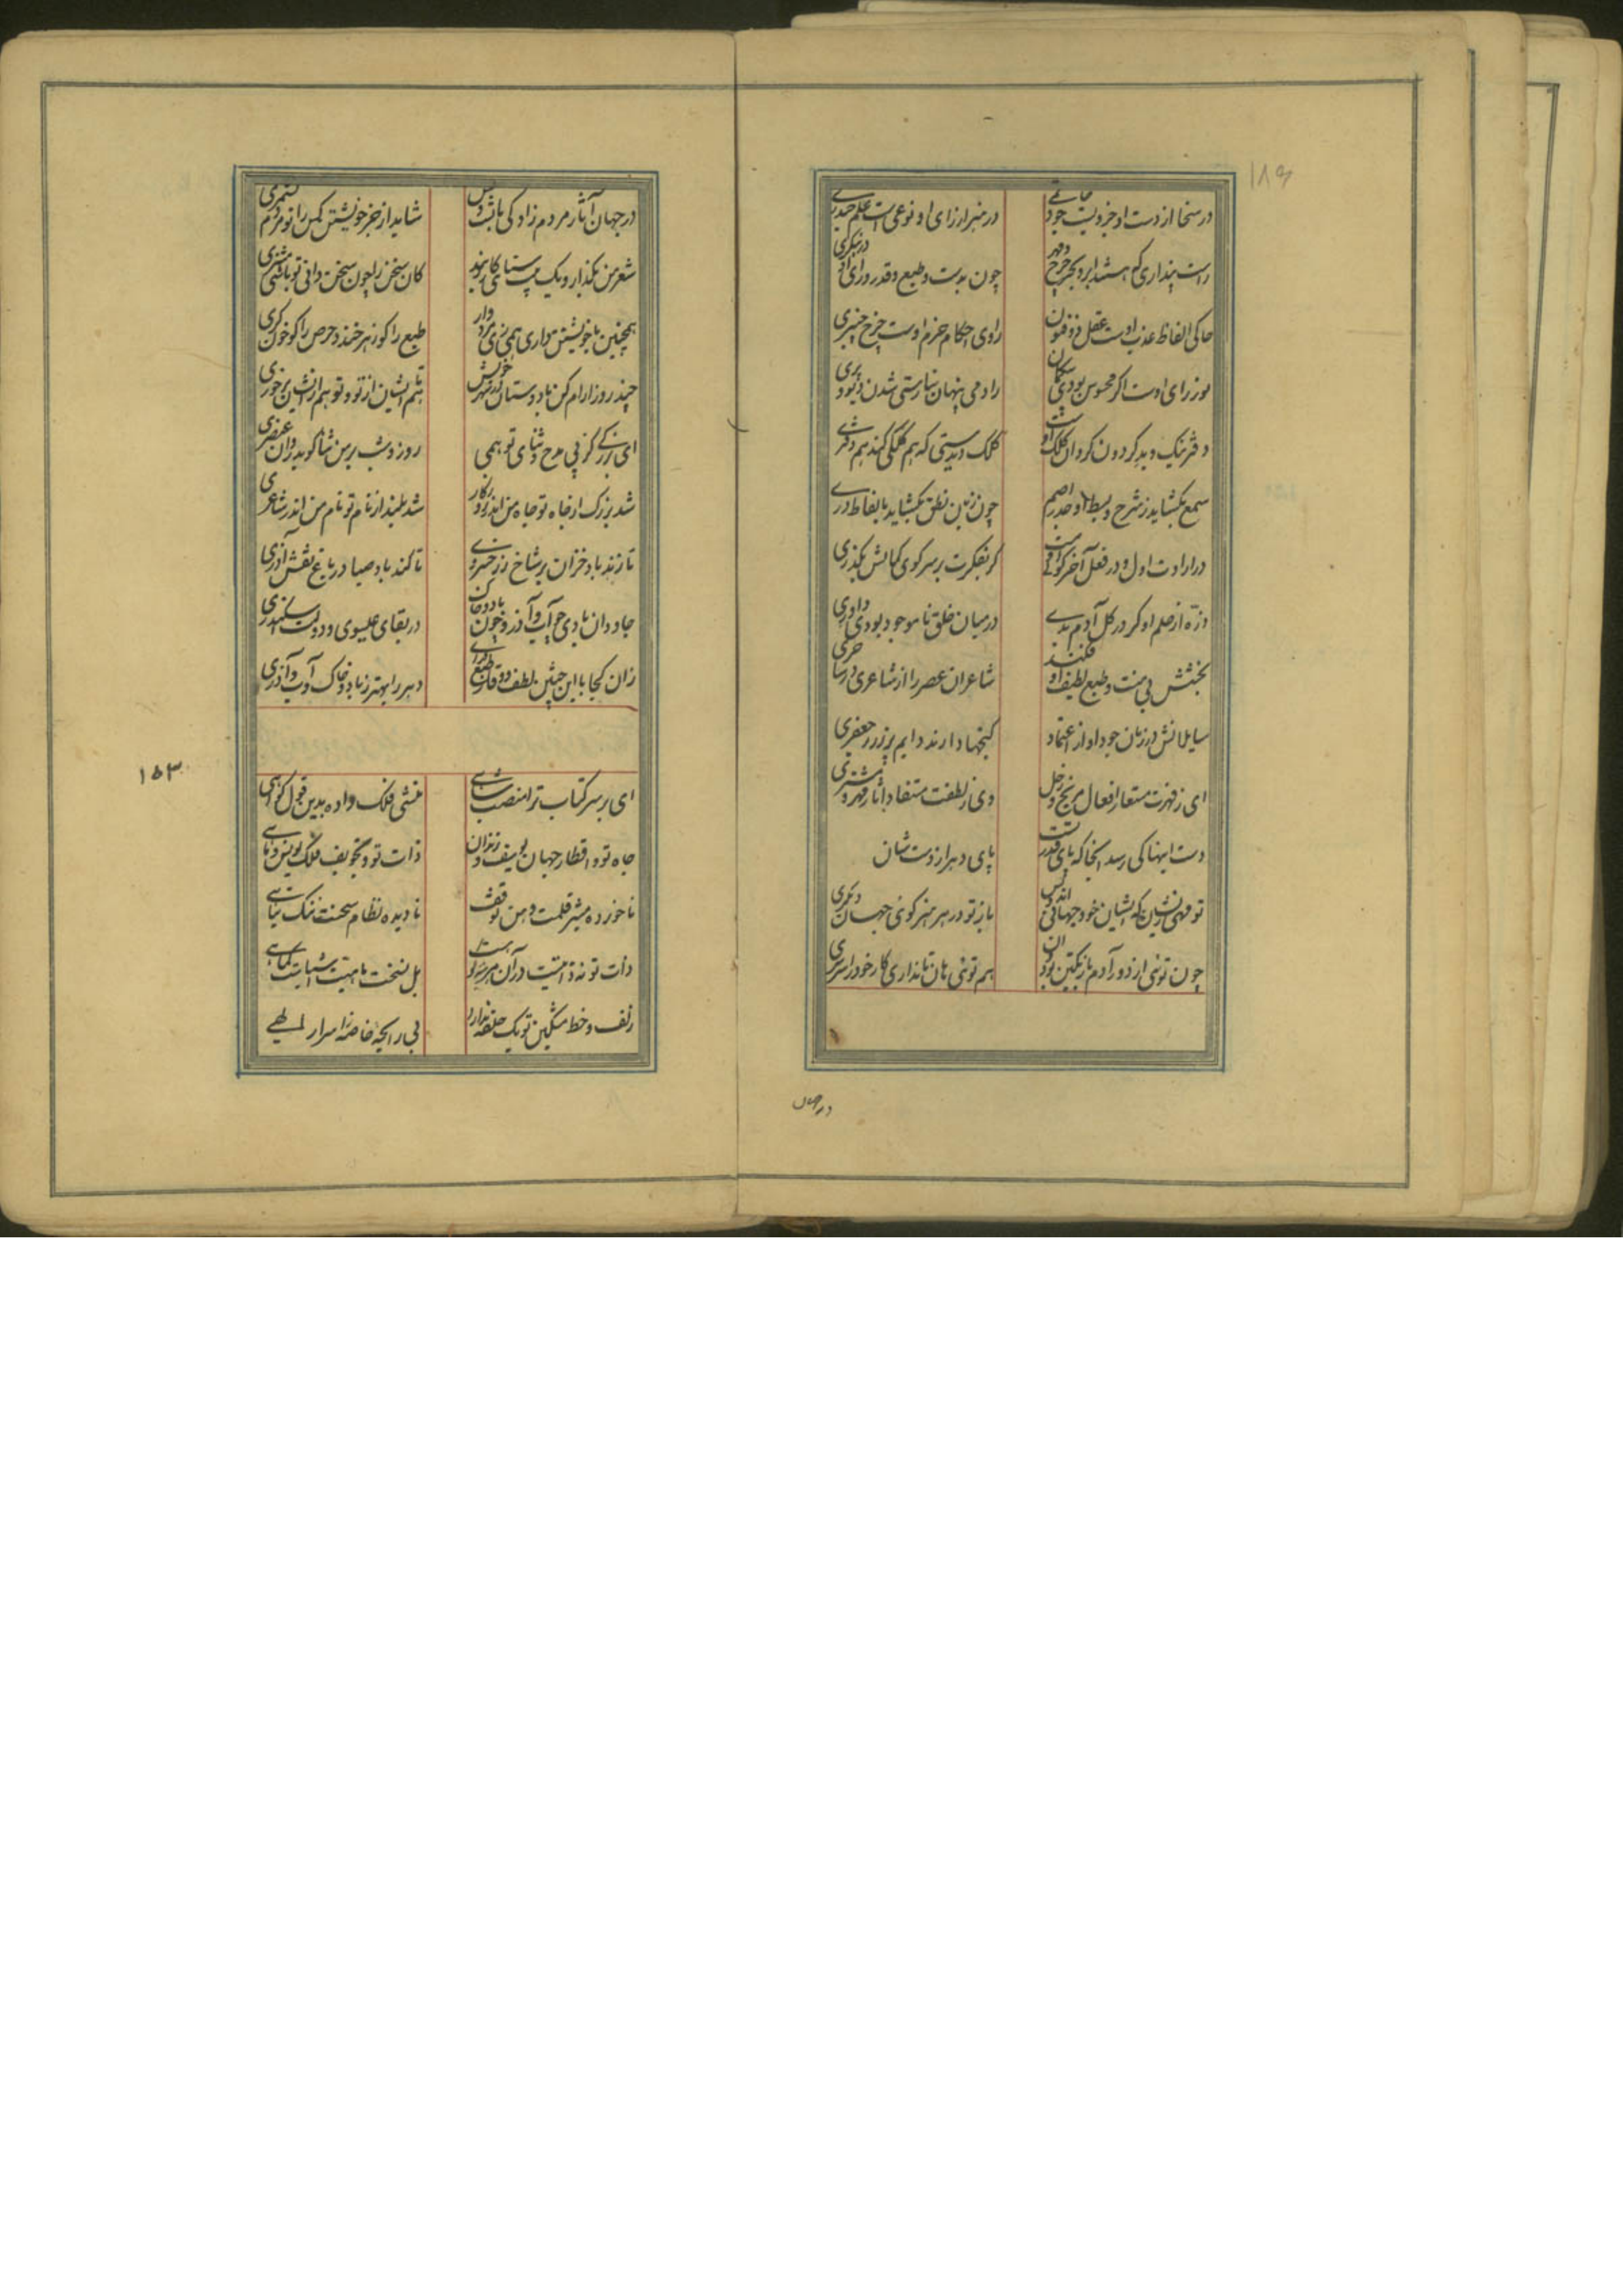 در سخا از دست او جزویست جود حاتمی
در هنر از رای او نوعی است علم حیدری
راست پنداری که هستند ابر و بحر و چرخ و مهر
چون بدست و طبع و قدر و رای او در بنگری
حاکی الفاظ عذب اوست عقل ذوفنون
راوی احکام حزم اوست چرخ چنبری
نور رای اوست اگر محسوس بودی بی گمان
زادمی پنهان نیارستی شدن دیو و پری
دفتر نیک و بد گردون گردان کلک اوست
کلک دیدستی که هم کلکی کند هم دفتری
سمع بگشاید ز شرح و بسط او جذر اصم
چون زبان نطق بگشاید بالفاظ دری
در ارادت اول و در فعل آخر گوئیست
گر بفکرت بر سر کوی کمالش بگذری
ذره از حلم او گر در گل آدم بدی
در میان خلق ناموجود بودی داوری
بخشش بی منت و طبع لطیف او فکند
شاعران عصر را از شاعری در ساحری
سایلانش در زمان جود او از اعتماد
گنجها دارند دایم پر ز زر جعفری
ای ز قهرت مستعار افعال مریخ و زحل
وی ز لطفت مستفاد آثار مهر و مشتری
دست اینها کی رسد آنجا که پای قدر تست
پای دهر از دست شان
تو جهانی
باز تو در هر هنر گوئی جهان دیگری
چون توئی از دور آدم باز یکتن بود آن
هم توئی هان تا نداری کار خود را سرسری
در جهان
در جهان آثار مردم زادگی با تست و بس
شاید از جز خویشتن کس را تو مردم نشمری
شعر من بگذار و یک بیت سنائی کار بند
کان سخن را چون سخن دانی تو باشی مشتری
همچنین با خویشتن داری همی زی مردوار
طبع را گو زهر خند و حرص را گو خون گری
چند روز آرام کن با دوستان در شهر خویش
تا هم ایشان از تو و تو هم از ایشان برخوری
ای بزرگی کز پی مدح و ثنای تو همی
روز و شب بر من ثنا گوید روان عنصری
شد بزرگ از جاه تو جاه من اندر روزگار
شد بلند از نام تو نام من اندر شاعری
تا زند باد خزان بر شاخ زر خسروی
تا کند باد صبا در باغ نقش آذری
جاودان بادی چو آب و آذر و چون باد و خاک
در بقای عیسوی و دولت اسکندری
زان کجا با این چنین لطف و ذوق و طبع و رای
دهر را بهتر ز باد و خاک و آب و آذری
ای بر سر کتاب ترا منصب شاهی
منشی فلک داده بدین قول گواهی
جاه تو و اقطار جهان یوسف و زندان
ذات تو و تجویف فلک یونس و ماهی
ناخورده مشیر قلمت وهن توقف
نادیده نظام سخنت ننگ تباهی
ذات تو نه ذاتیست در آن
بل نسخت ماهیت اشیاست کماهی
زلف و خط مشکین تو یک حلقه ندارد
بی رایحه خاصه ز اسرار الهی
۱۵۳